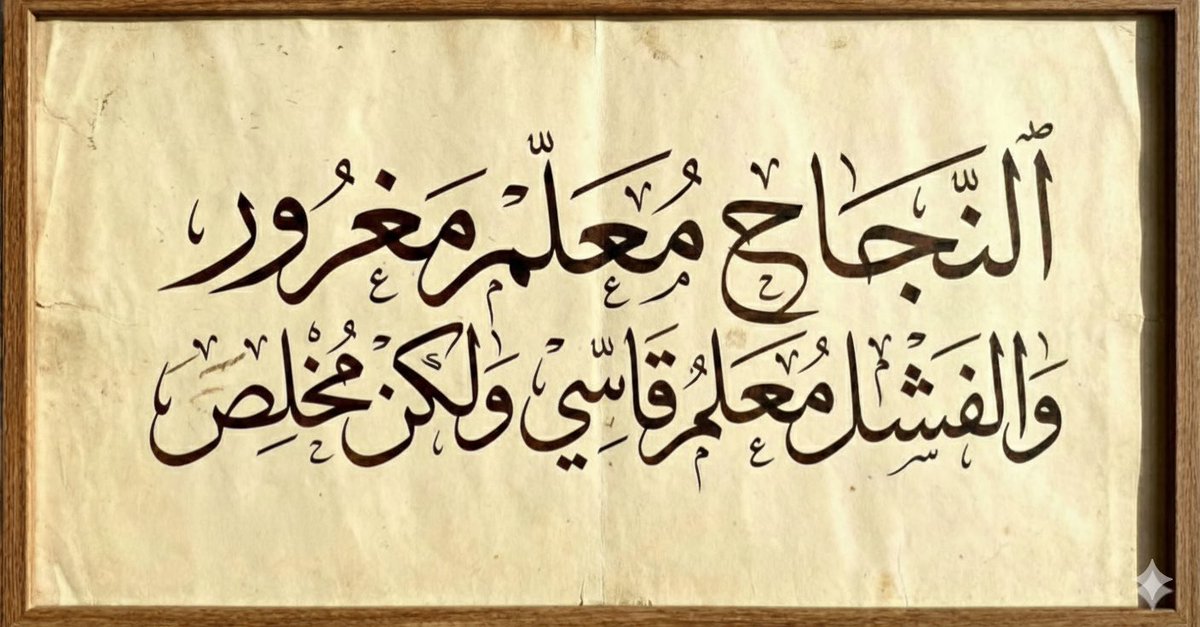 ٱلنَّجَاح مُعَلّم مَغرُور
وَالفَشل مُعَلمُ قَاسِّي وَلكن مُخْلِص